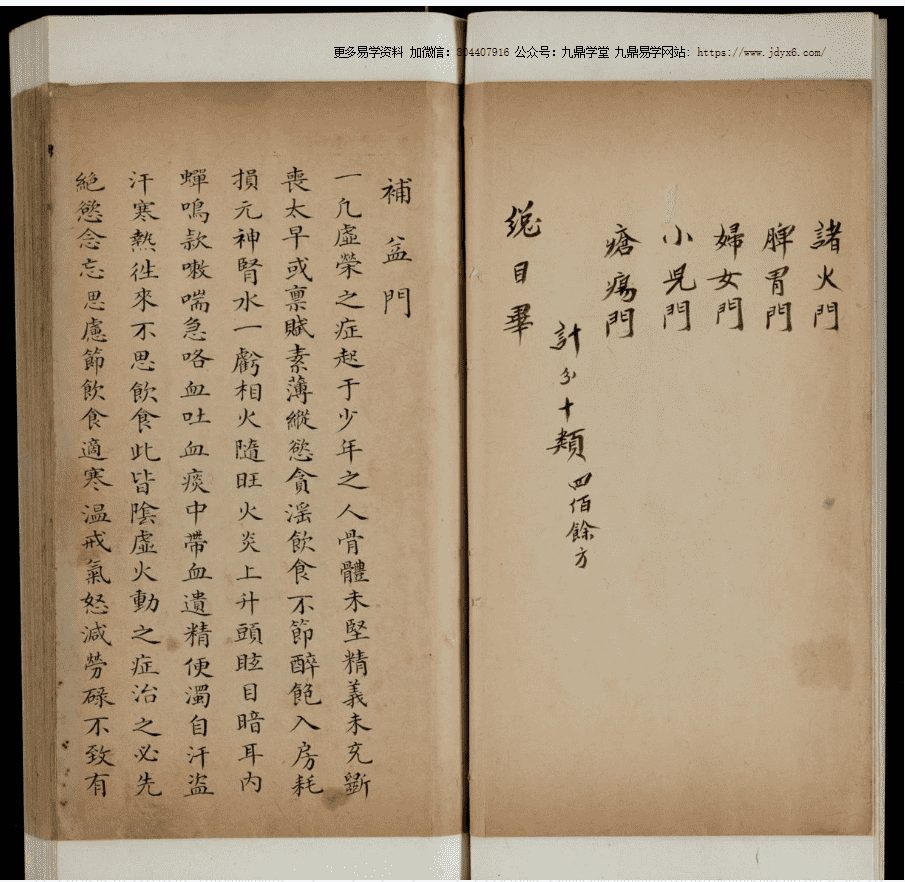 更多易学资料 加微信：304407916 公众号：九鼎学堂 九鼎易学网站：https://www.jdyx6.com/
諸火門
脾胃門
婦女門
小児門
瘡瘍門
計分十類 四佰餘方
総目畢
補益門
一凡虛榮之症起于少年之人骨體未堅精義未充斷
喪太早或禀賦素薄縱慾貪淫飲食不節醉飽入房耗
損元神腎水一虧相火隨旺火炎上升頭眩目暗耳内
蟬鳴欬嗽喘急咯血吐血痰中帶血遺精便濁自汗盜
汗寒熱徃來不思飲食此皆陰虛火動之症治之必先
絶慾念忘思慮節飲食適寒温戒氣怒減勞碌不致有